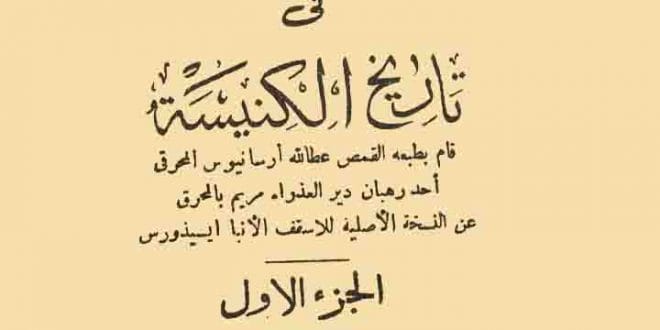 في
تاريخ الكنيسة
قام بطبعه القمص عطاالله أرسانيوس المحرقى
أحد رهبان دير العذراء مريم بالمحرق
عن النسخة الأصلية للاسقف الأنبا ايسيذورس
الجزء الاول